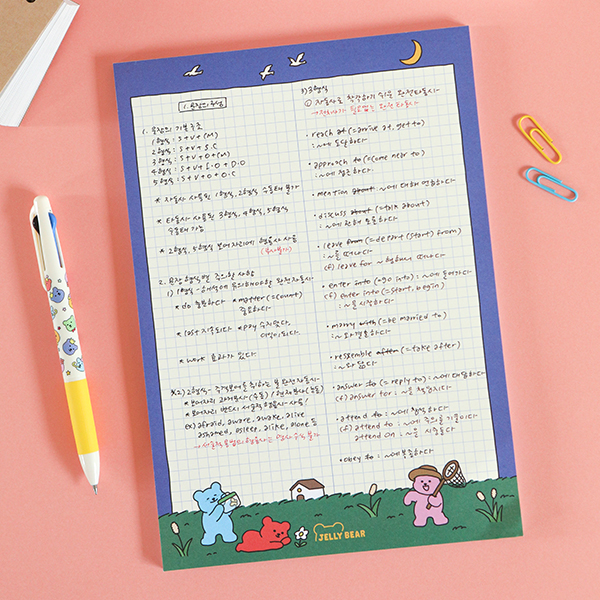 1. 문장의 구성
1. 문장의 기본 구조
1형식 : S+V+(M)
2형식 : S+V+S.C
3형식 : S+V+O+(M)
4형식 : S+V+I.O+D.O
5형식 : S+V+O+O.C
* 자동사 사용된 1형식, 2형식 수동태 불가
* 타동사 사용된 3형식, 4형식, 5형식
수동태 가능
* 2형식, 5형식 보어자리에 형용사 사용
(부사불가)
2. 문장 형식별 주의할 사항
1) 1형식
* do 충분하다 * matter (=count)
중요하다
* last 지속되다 * pay 수지맞다,
* work 효과가 있다
※2) 2형식
ex) afraid, aware, awake, alive
ashamed, asleep, alike, alone 등
3) 3형식
① 자동사로 착각하기 쉬운 완전타동사
→ 전치사가 필요없는 완전타동사
· reach at (=arrive at, get to)
: ~에 도달하다
· approach to (=come near to)
: ~에 접근하다
· mention about : ~에 대해 언급하다
· discuss about (=talk about)
: ~에 대해 토론하다
· leave from (=depart (start) from)
: ~을 떠나다
cf) leave for ~ 향해서 떠나다
· enter into (=go into) : ~에 들어가다
cf) enter into (=start, begin)
: ~을 시작하다
· marry with (=be married to)
: ~와 결혼하다
· ressemble after (=take after)
: ~와 닮다
· answer to (=reply to) : ~에 대답하다
cf) answer for : ~을 책임지다
· attend to : ~에 참석하다
cf) attend to : ~에 주의를 기울이다
attend on : ~을 시중들다
· obey to : ~에 복종하다
JELLY BEAR